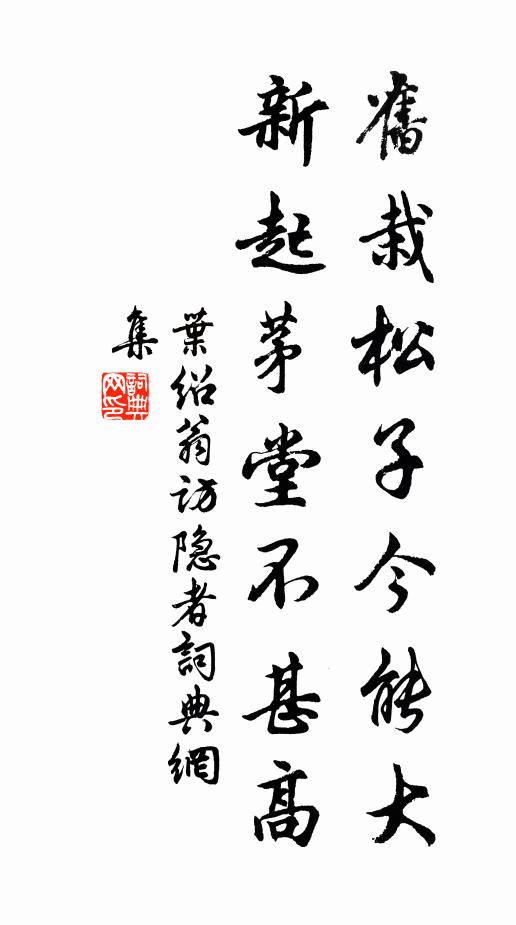 舊栽松子今能大
新起茅堂不甚高
葉紹翁訪隐者詞典網
集
詞典网印